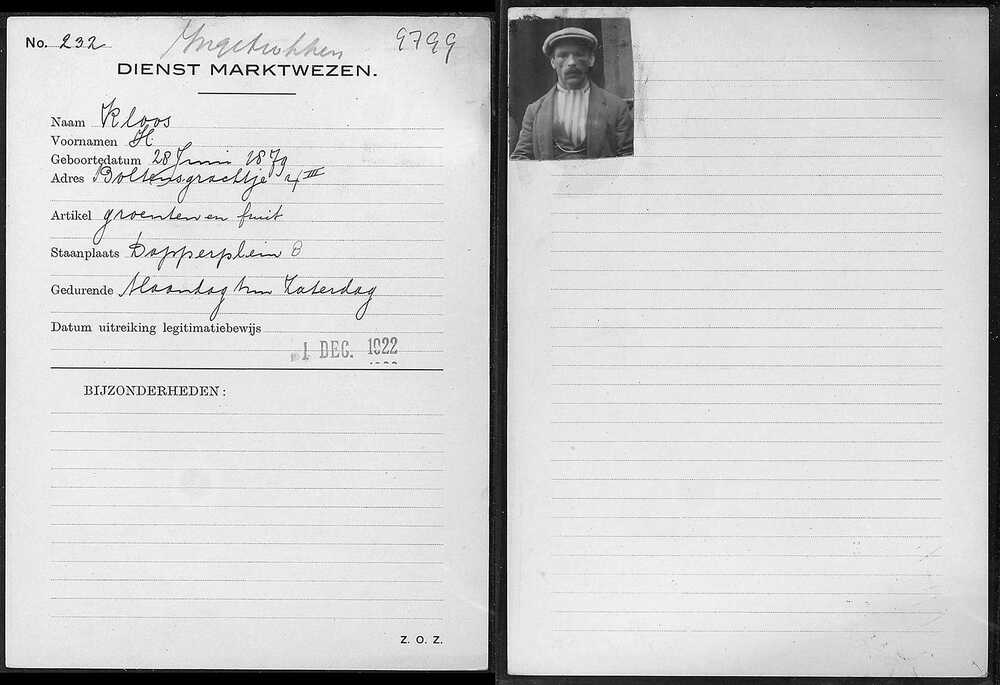 No. 232 Ingetrokken 9799
DIENST MARKTWEZEN.
Naam Kloos
Voornamen H
Geboortedatum 28 Juni 1879
Adres Boltensgrachtje 4 III
Artikel groenten en fruit
Staanplaats Dapperplein 8
Gedurende Maandag t/m Zaterdag
Datum uitreiking legitimatiebewijs
1 DEC. 1922
BIJZONDERHEDEN:
Z. O. Z.